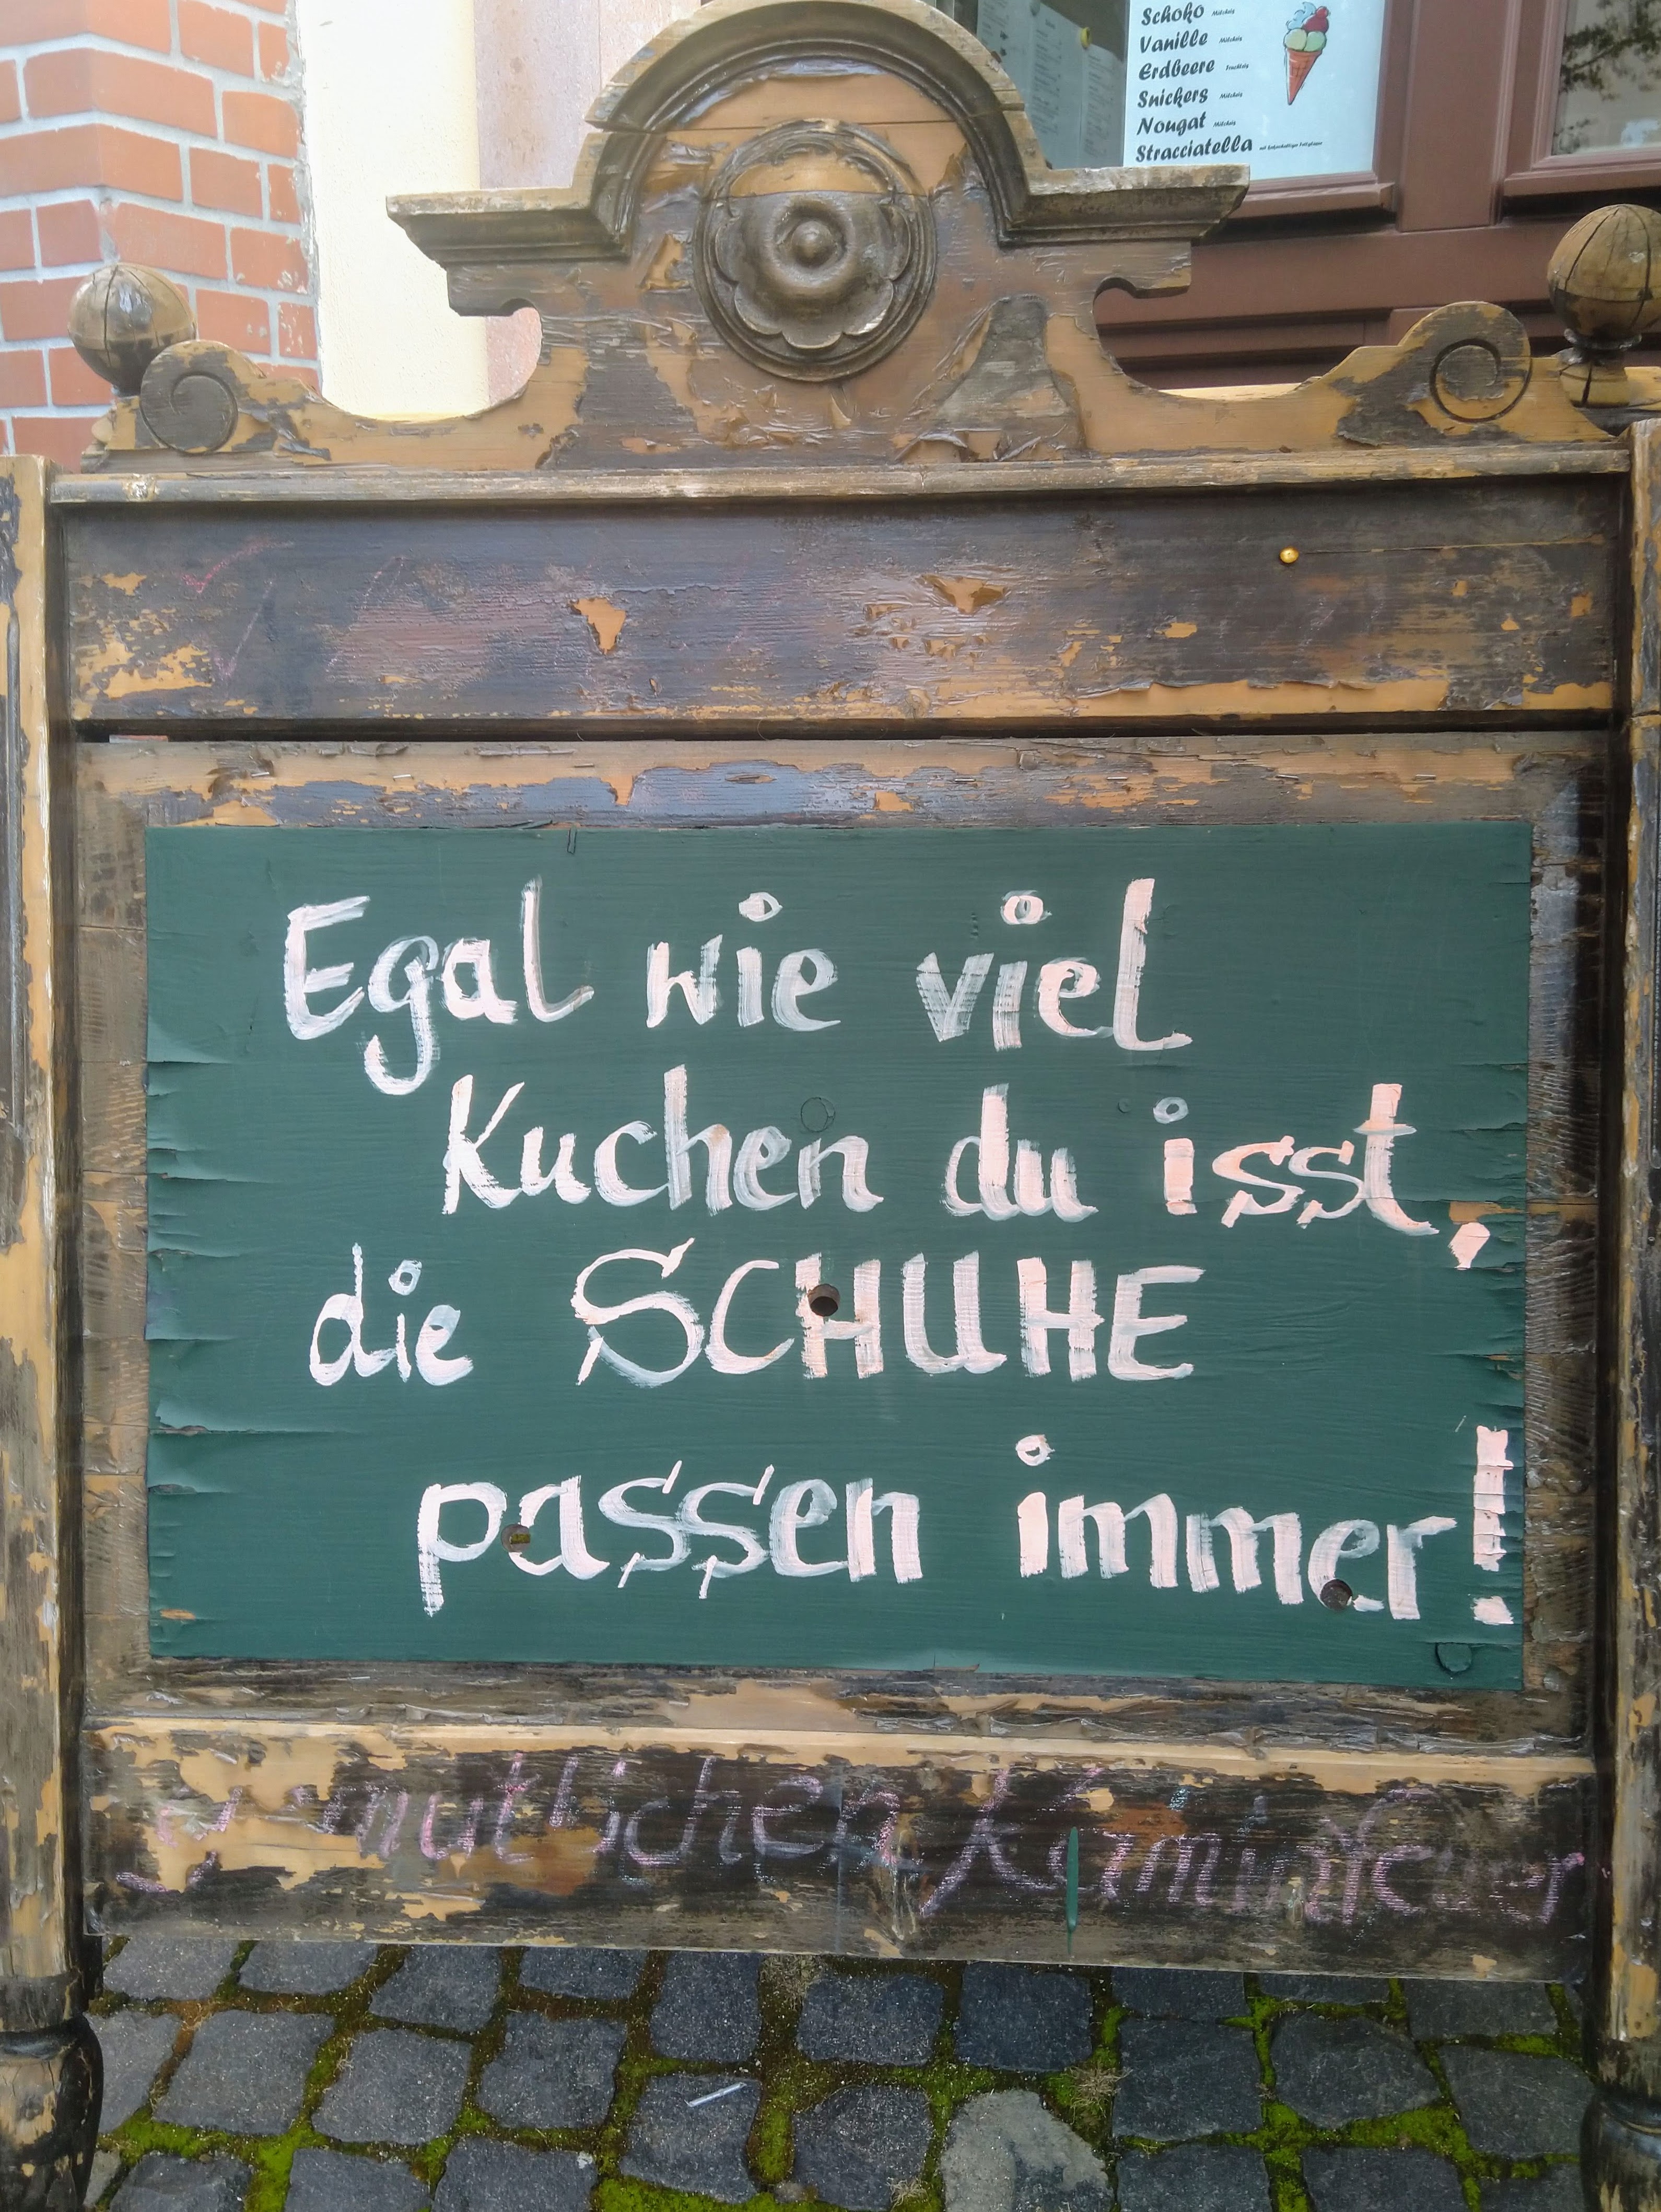 Schoko Milcheis
Vanille Milcheis
Erdbeere Fruchteis
Snickers Milcheis
Nougat Milcheis
Stracciatella
Egal wie viel
Kuchen du isst,
die SCHUHE
passen immer!